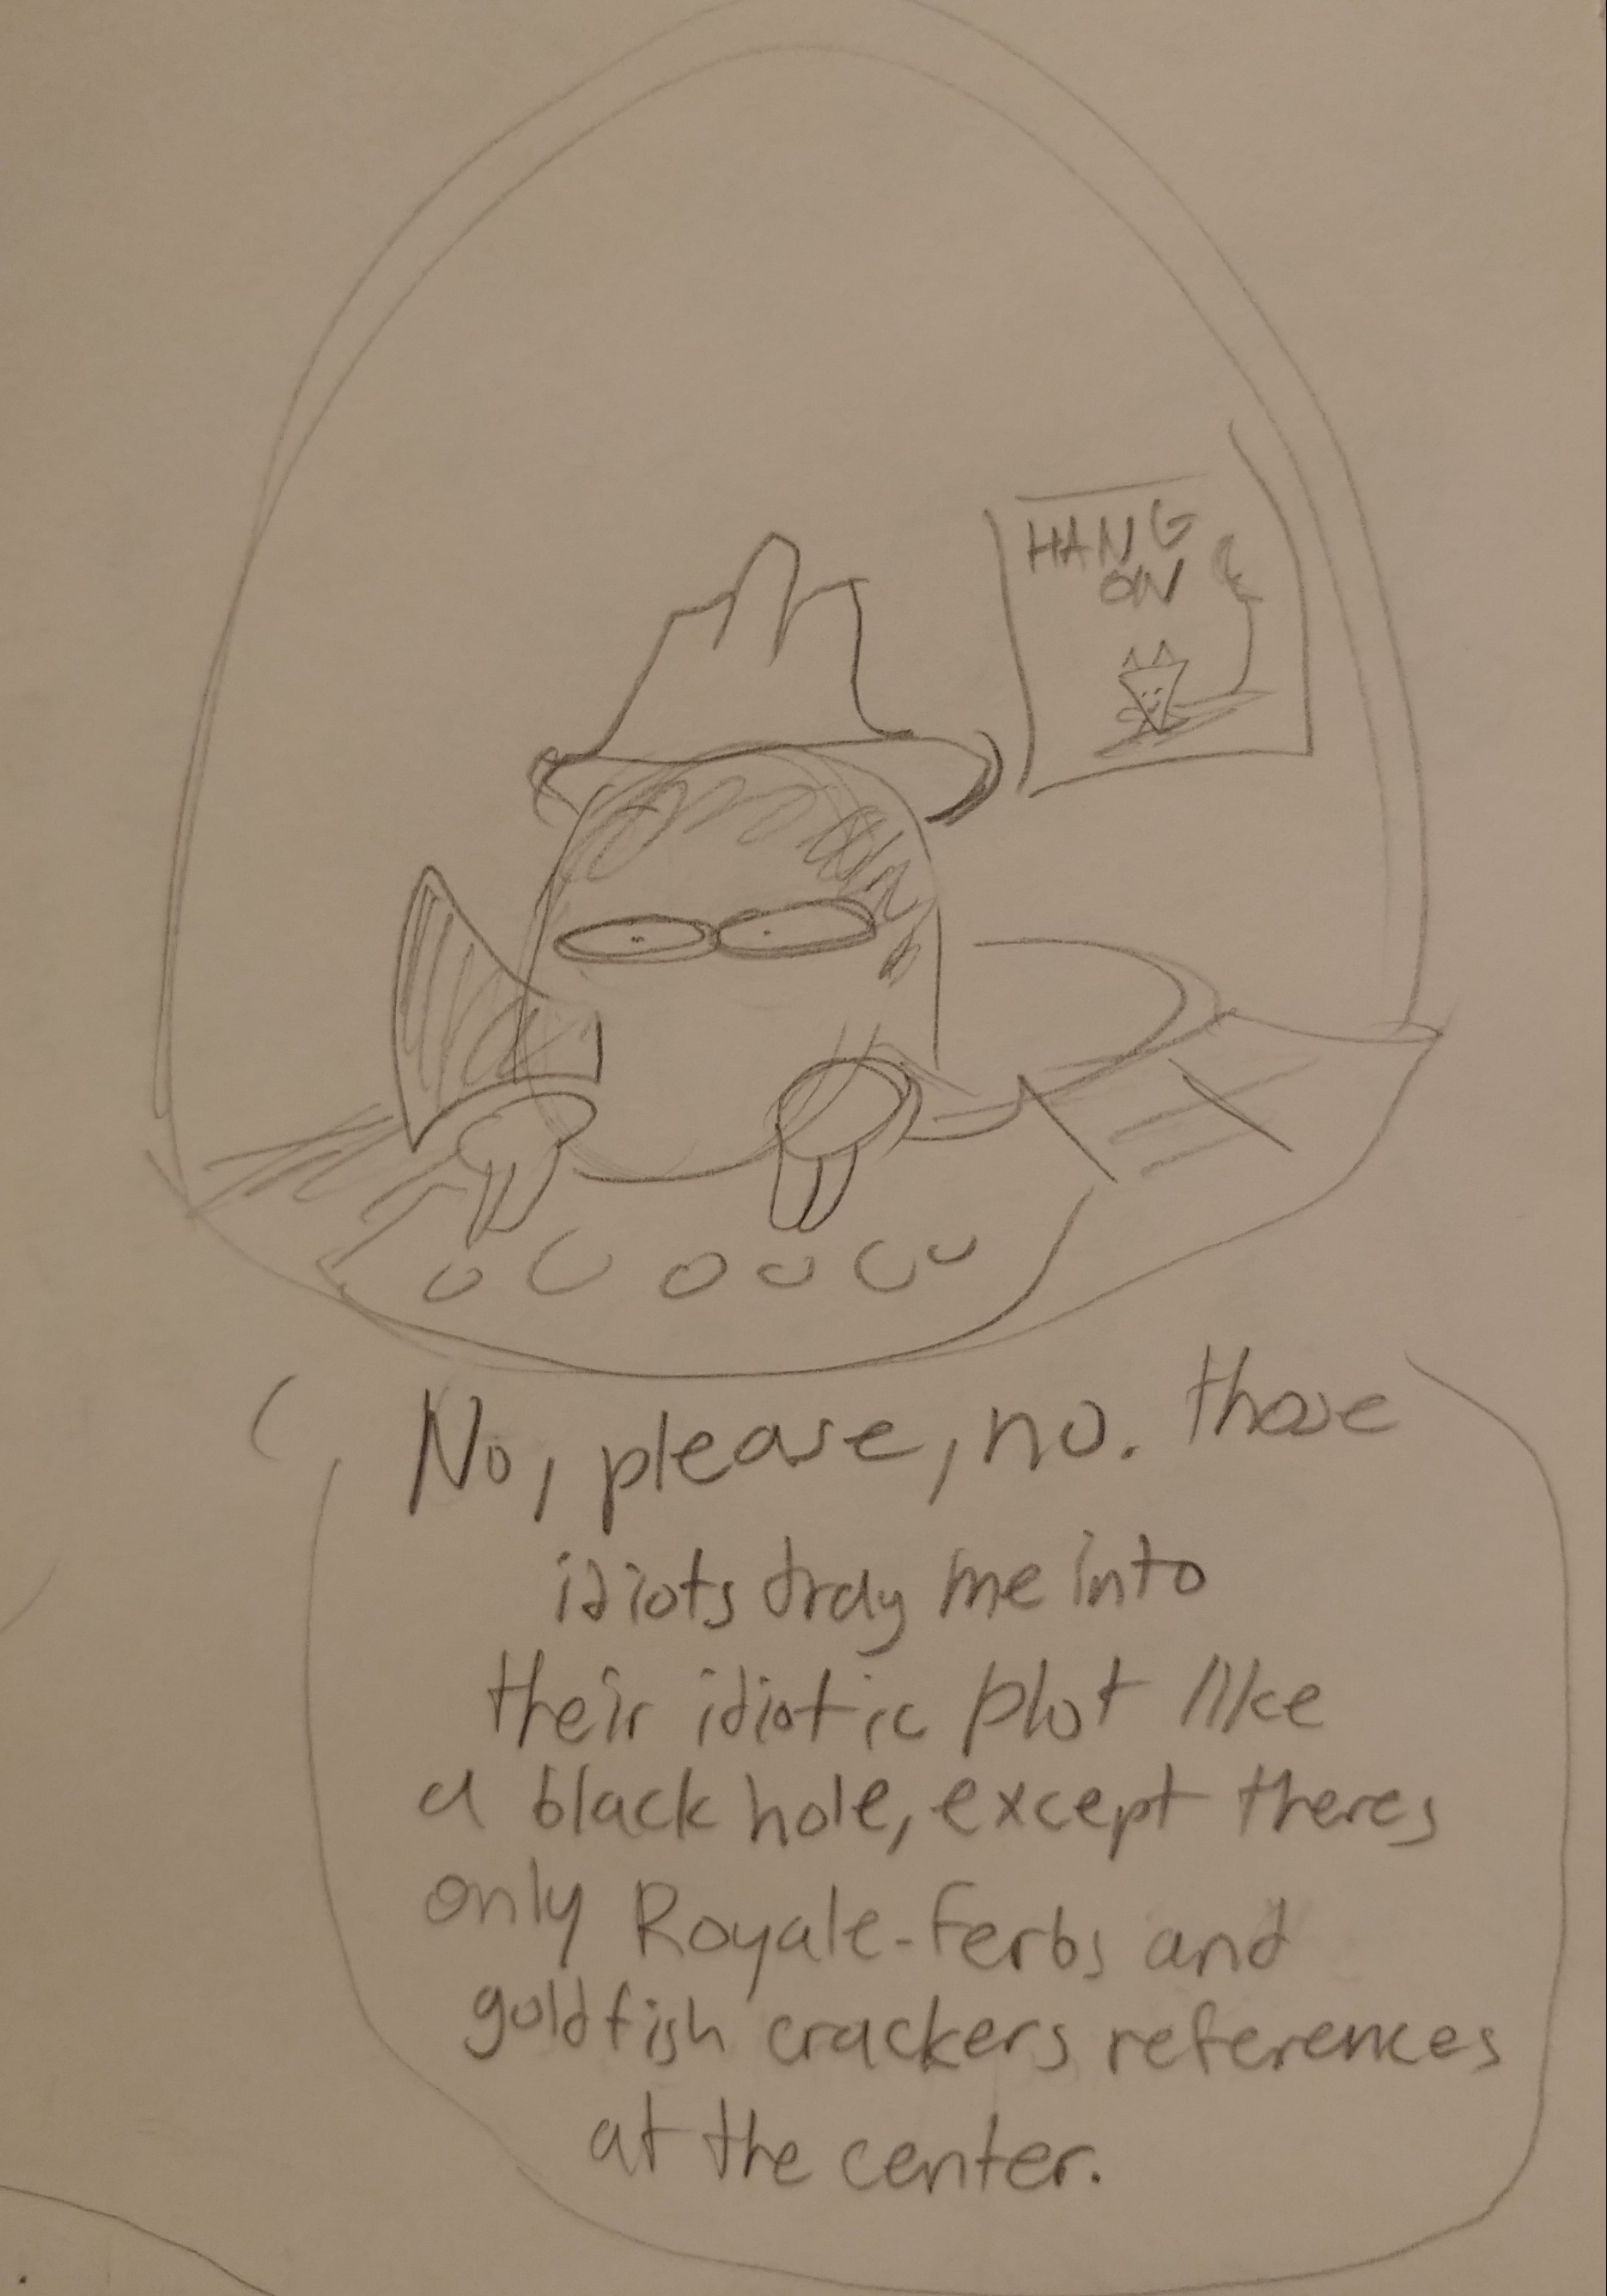 HANG
ON
No, please, no. those
idiots drag me into
their idiotic plot like
a black hole, except theres
only Royale-Ferbs and
goldfish crackers references
at the center.